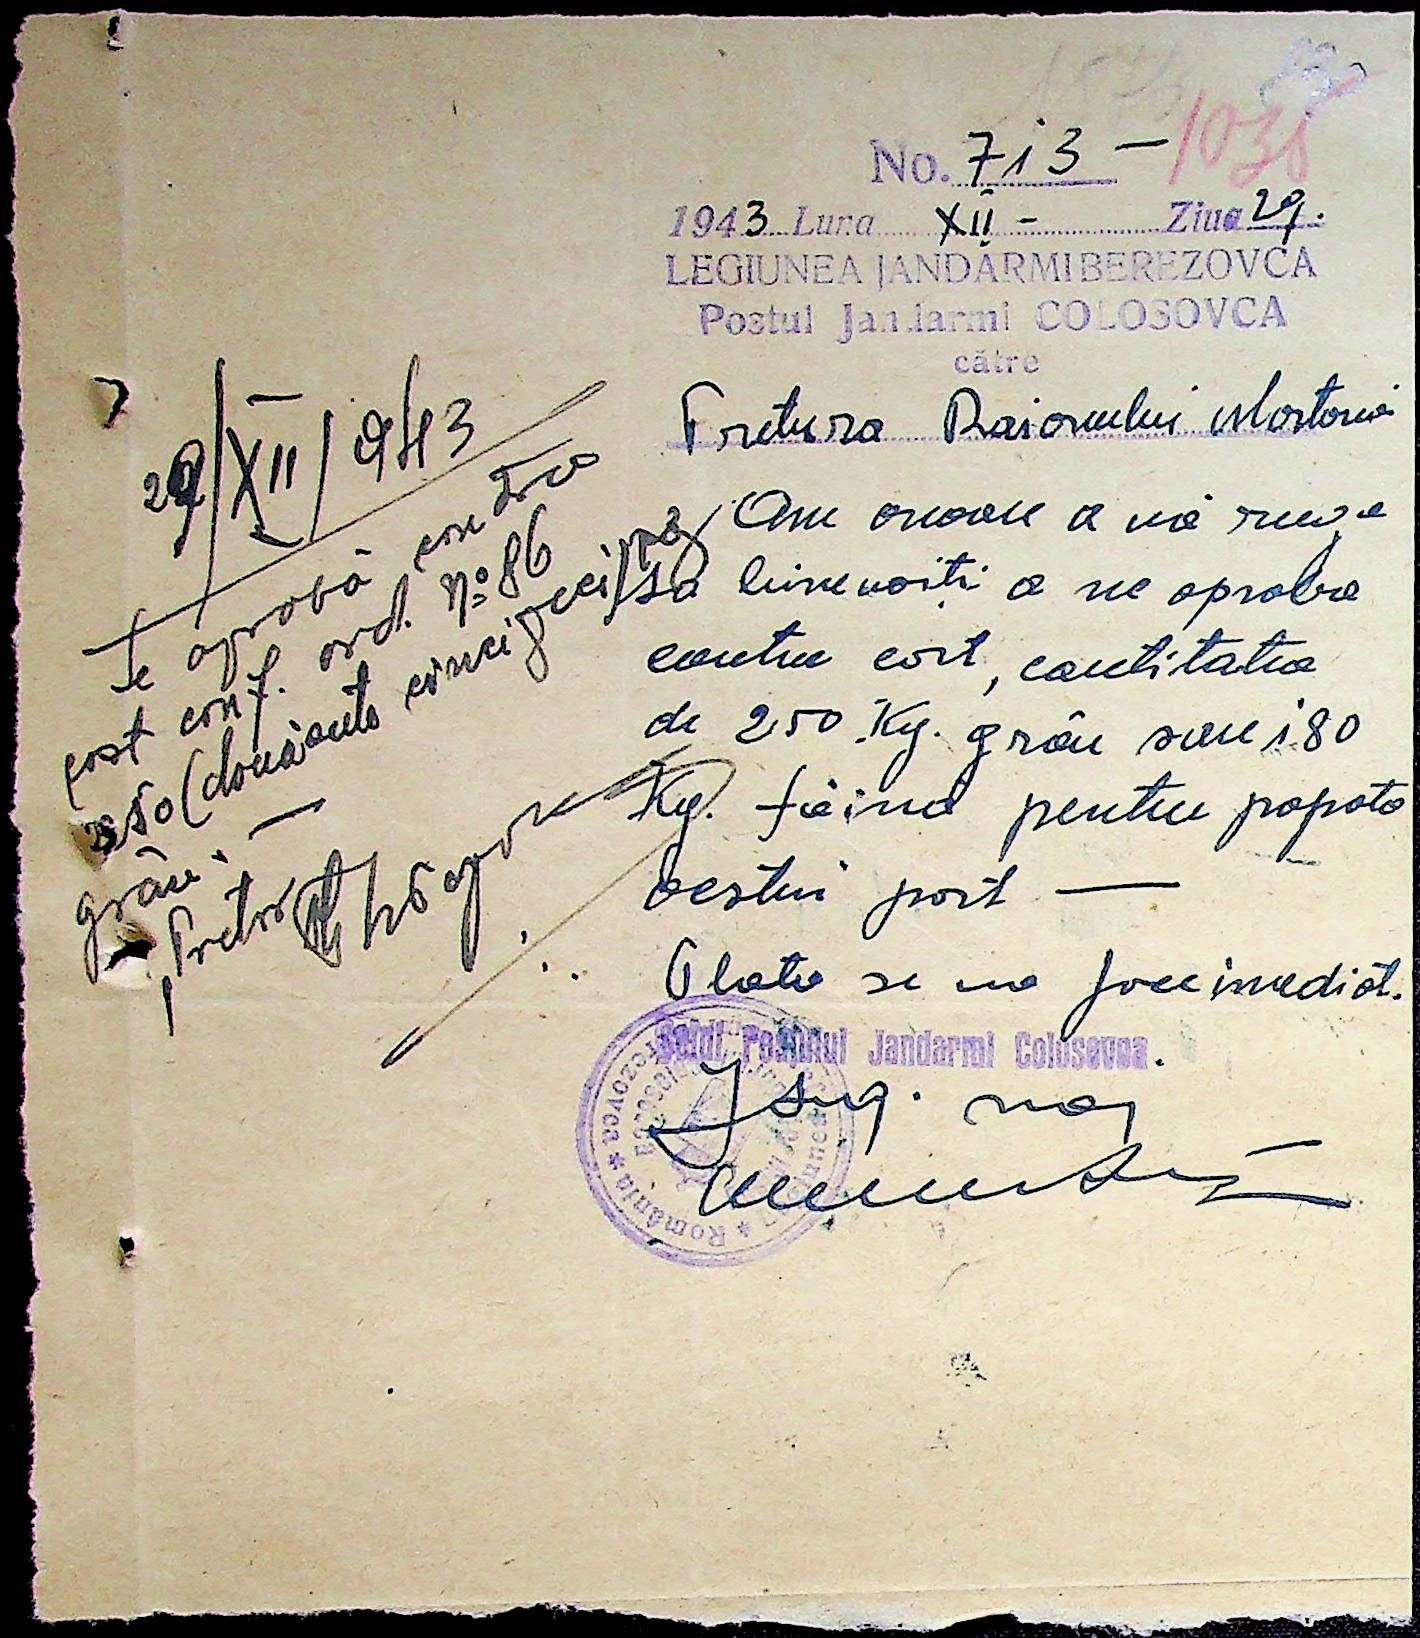 1038
No. 713 -
1943 Luna XII - Ziua 29.
LEGIUNEA JANDARMI BEREZOVCA
Postul Jandarmi COLOSOVCA
către
Pretura Raionului Mostovoi
Am onoare a vă ruga
să binevoiți a ne aproba
contra cost, cantitatea
de 250 Kg. grâu sau 180
Kg. făină pentru popota
acestui post —
Plata se va face imediat.
Șeful Postului Jandarmi Colosovca.
Sug. maj
România * Berezovca *
29/XII/943
Se aprobă contra
cost conf. ord. No. 86
250 (douăsute cincizeci) kg
grâu. —
Pretor